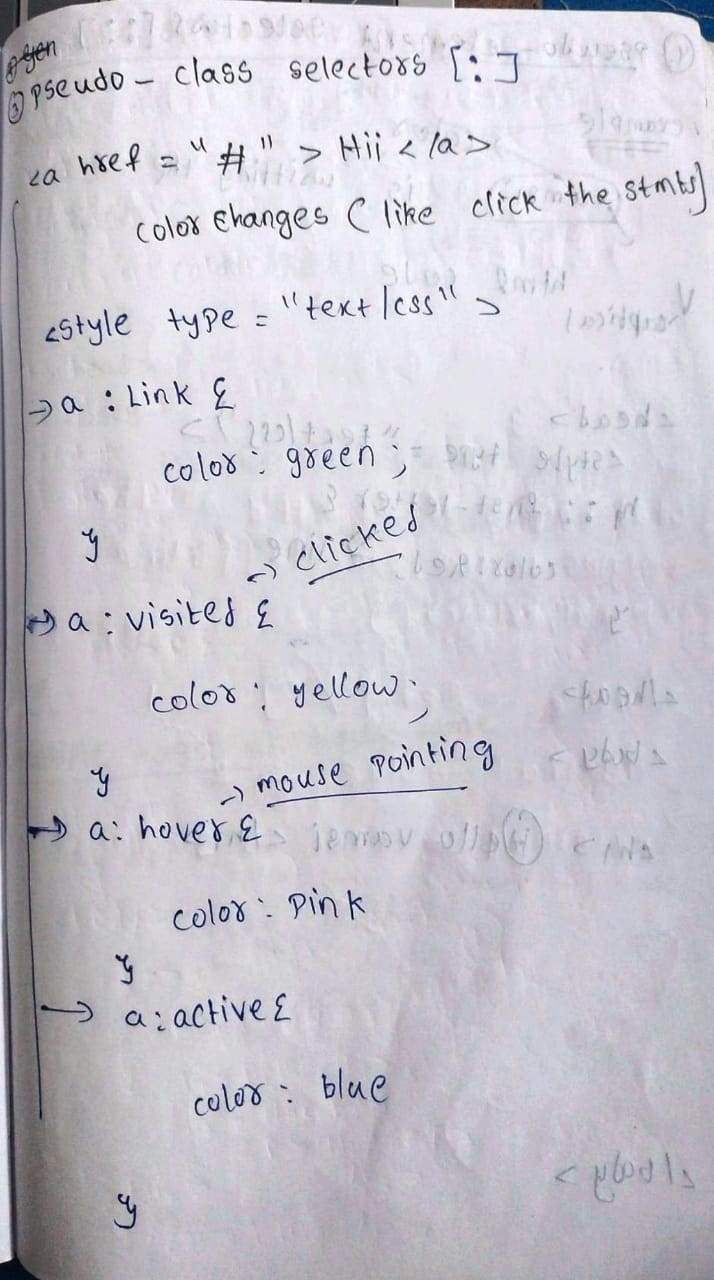 ③ pseudo - class selectors [:]
<a href = "#" > Hii </a>
color changes ( like click the stmts]
<style type = "text/css" >
→ a : Link {
color : green ;
}
→ clicked
→ a : visited {
color : yellow ;
}
→ mouse pointing
→ a : hover {
color : pink
}
→ a : active {
color : blue
}